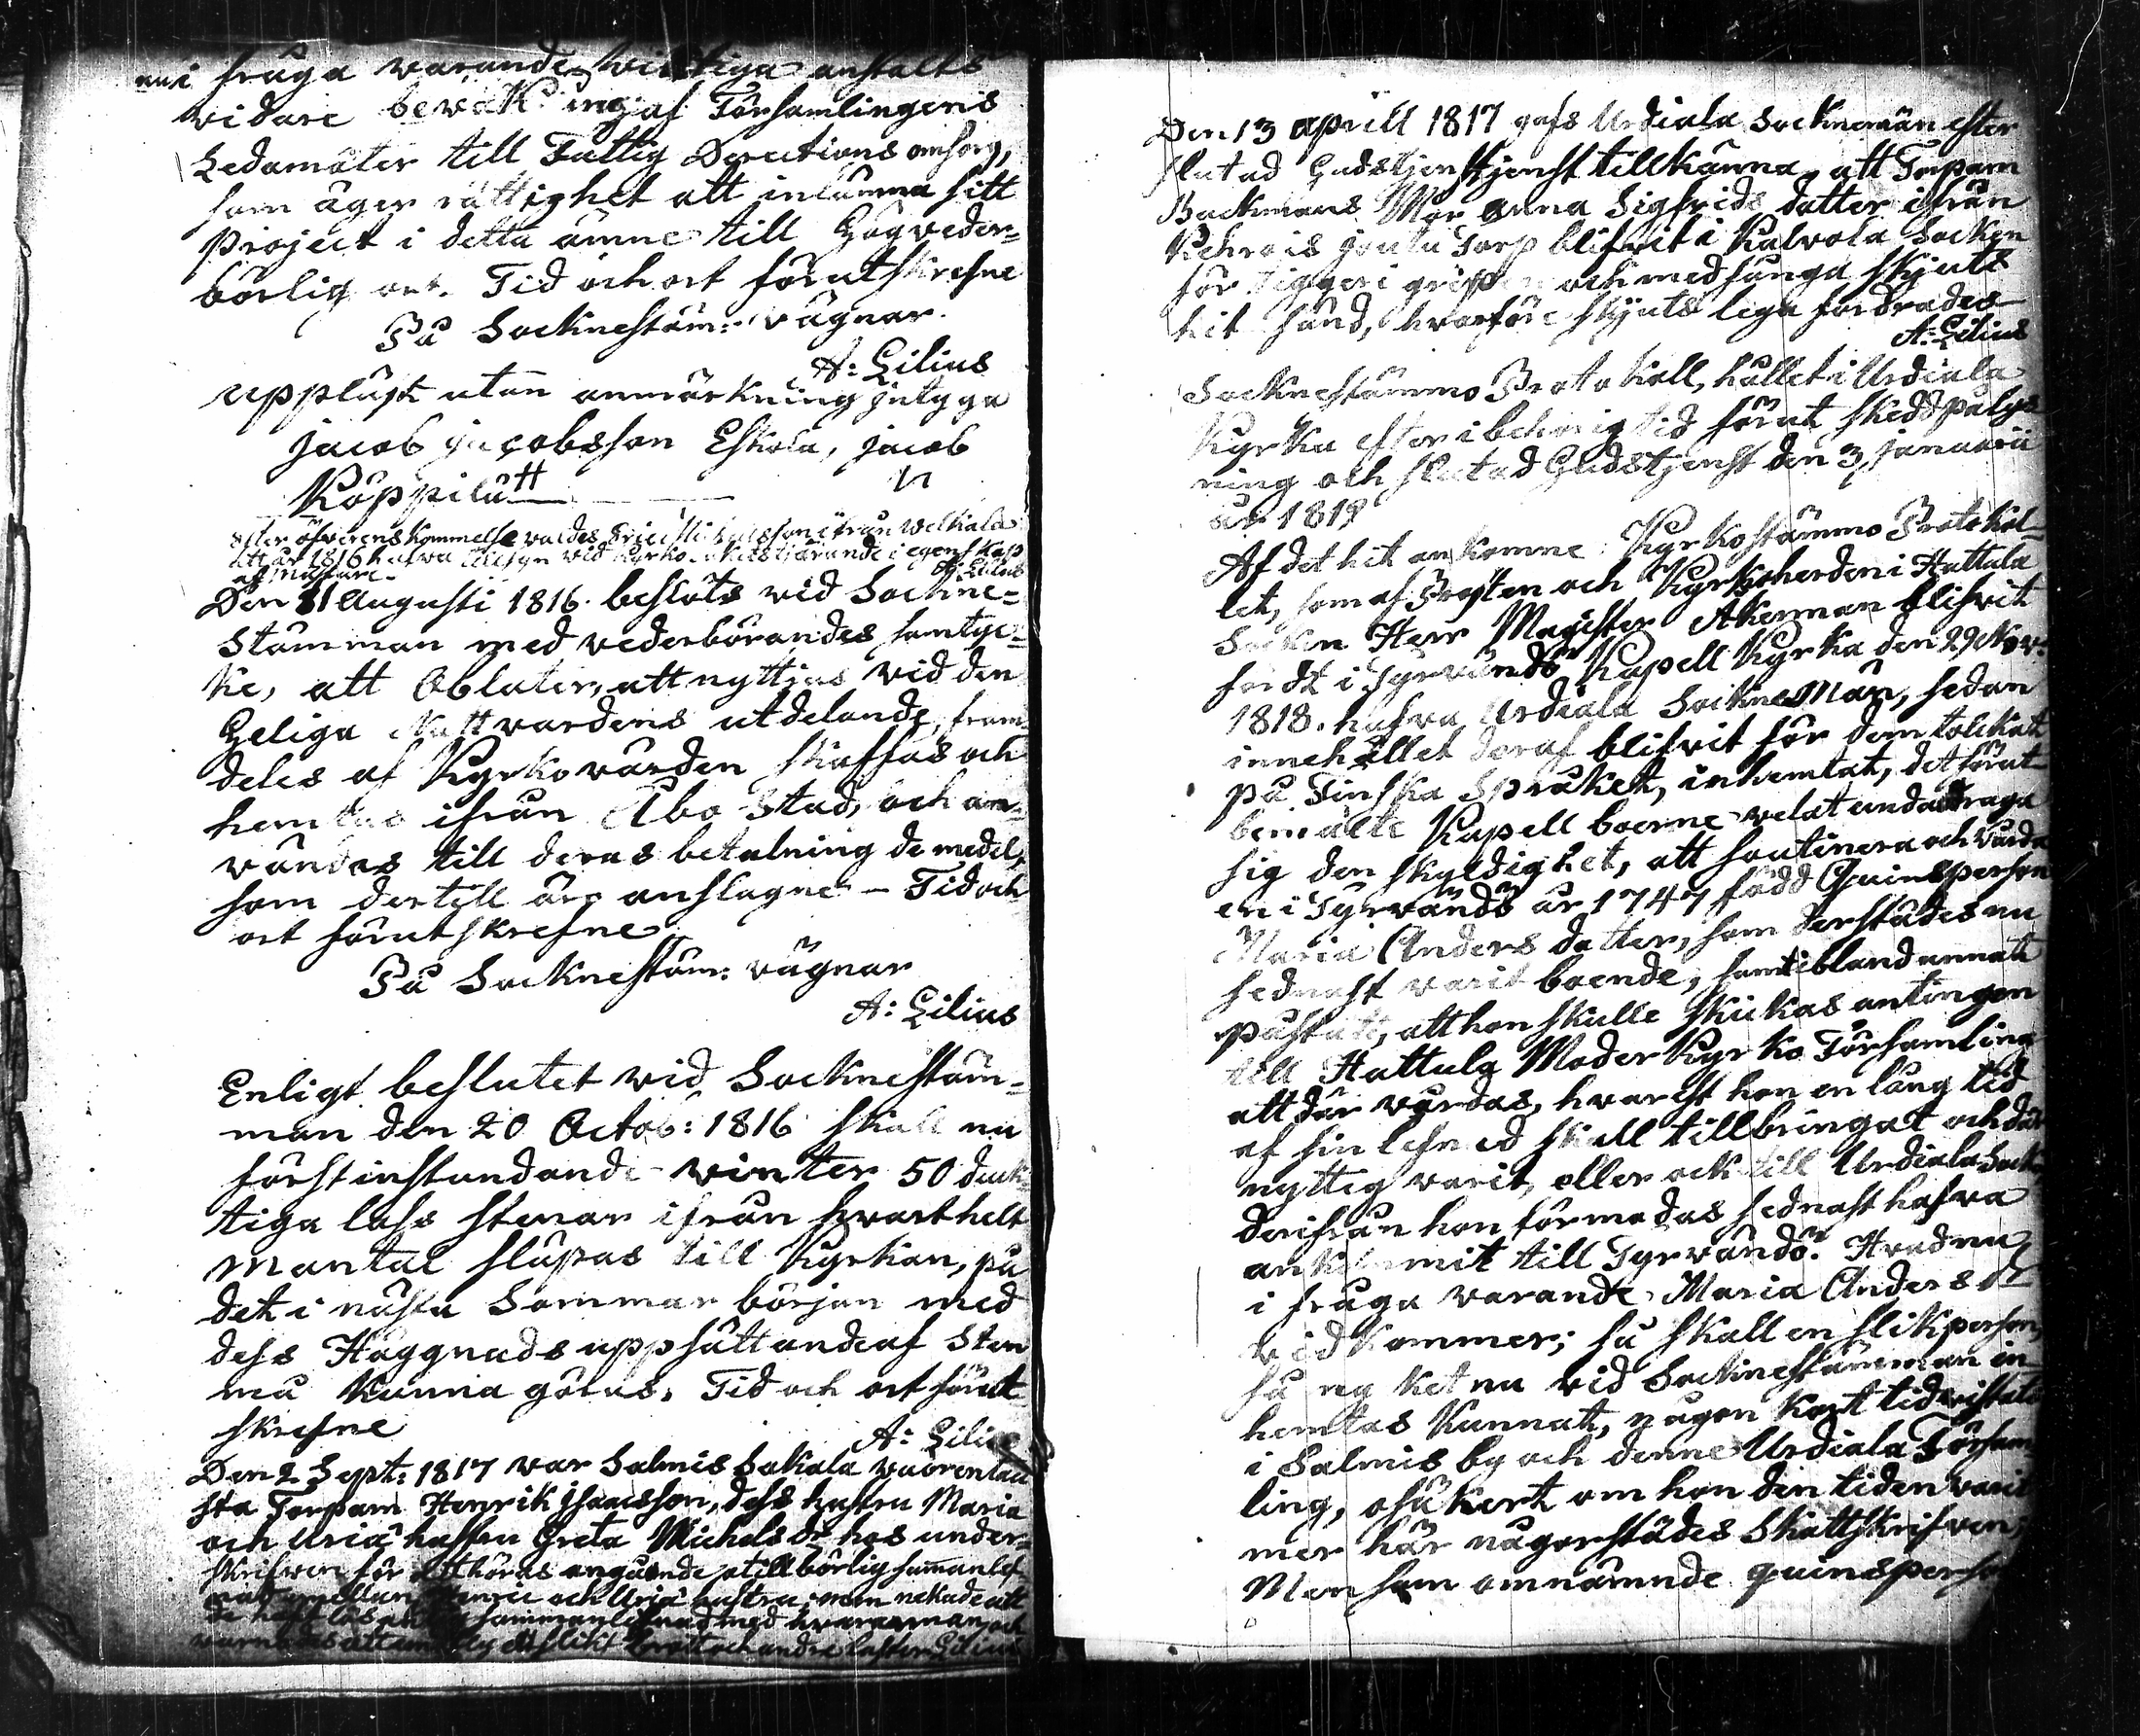 nu i fråga varande wicktiga anstalts
vidare bewak: ing af Församlingens
Ledamöter till Fattig Directions omsorg,
som äger rättighet att inlämna sitt
Project i detta ämne till Högveder-
börlig ort. Tid och ort förutskrefne
På Socknestäm: vägnar.
A: Lilius
uppläst utan anmärkning intyga
Jacob Jacobsson Eskola, Jacob
Koppilatt
efter öfverenskommelse valdes ifrån
att år 1816 hafva vid Kyrko i egenskap
af
A: Lilius
Den 11 Augusti 1816. beslöts vid Sockne-
stämman med vederbörandes samtyc-
ke, att Oblater, att nyttjas vid den
Heliga Nattvardens utdelande, fram-
deles af Kyrkovärden skaffas och
hemtas ifrån Åbo Stad, och an-
vändas till deras betalning de medel,
som dertill äro anslagne – Tid och
ort förutskrefne
På Socknestäm: vägnar
A: Lilius
Enligt beslutet vid Socknestäm-
man den 20 Octob: 1816 skall nu
förstinstundande winter 50 duk-
tiga lass stenar ifrån hvart helt
Mantal släpas till Kyrkan, på
det i nästa Sommar början med
dess Häggnads uppsättande af Sten
må kunna göras. Tid och ort förut
skrefne
A: Lilius
Den 2 Sept: 1817 var Salmis Sakala
sta Torparn Henrik Isaacsson, dess hustru Maria
och hustru Greta Michels dr hos under-
skrifven för att höras angående otillbörlig sammanlef-
nad mellan Henric och hustru; men nekade att
de haft sammanlefnad med hvarannan och
varnades att slikt och andra laster. Lilius
Den 13 aprill 1817 gafs Urdiala Sockneman efter
slutad Gudstjenstjenst tillkänna, att Torparn
Backmans Mor Anna Sigfrids dotter ifrån
Torp blifvit i Kalvola Socken
för tiggeri gripen och med fånga skjuts
hit sänd, hvarföre skjuts lega fordrades
A: Lilius
Socknestämmo Protokoll, hållet i Urdiala
Kyrka efter i behörig tid förut skedd pålys
ning och slutad Gudstjenst den 3 januarii
år 1819
Af det hit ankomne Kyrkostämmo Protokol-
let, som af Prosten och Kyrkoherden i Hattula
Socken Herr Magister Åkerman blifvit
fördt i Tyrvändö Kapell Kyrka den 29 Nov:
1818. hafva Urdiala Sockne Män, sedan
innehållet deraf blifvit för dem tolckat
på Finska Språket, inhemtat, det förut
bemälte Kapell boerne velat undandraga
sig den skyldighet, att soutinera och vårda
en i Tyrvändö år 1747 född Quinsperson
Maria Anders dotter, som derstädes nu
sednast varit boende, samt ibland annat
påstått, att hon skulle skickas antingen
till Hattula Moder Kyrko Församling
att där vårdas, hvarest hon en lång tid
af sin lefned skall tillbringat och där
nyttig varit, eller ock till Urdiala Sock
derifrån hon förmodas sednast hafva
ankommit till Tyrvändö. Hvad nu
i fråga varande Maria Anders dr
vidkommer; så skall en slik person,
så mycket nu vid Socknestämman in
hemtas kunnat, någon kort tid vistats
i Salmis by och denne Urdiala Försam
ling, osäkert om hon den tiden varit
mer här någorstädes skattskrifven;
Men som omnämnde quinsperson